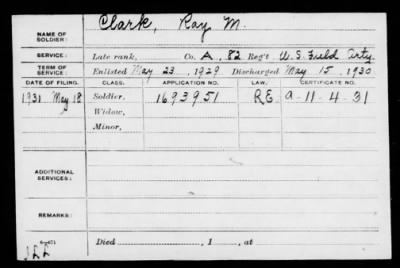 NAME OF SOLDIER: Clark, Ray M.
SERVICE: Late rank, Co. A, 82 Reg't U.S. Field Arty.
TERM OF SERVICE: Enlisted May 23, 1929 Discharged May 15, 1930
DATE OF FILING. CLASS. APPLICATION NO. LAW. CERTIFICATE NO.
1931 May 18 Soldier, 1693951 R.E. a-11-4-31
Widow,
Minor,
ADDITIONAL SERVICES:
REMARKS:
Died , 1 , at